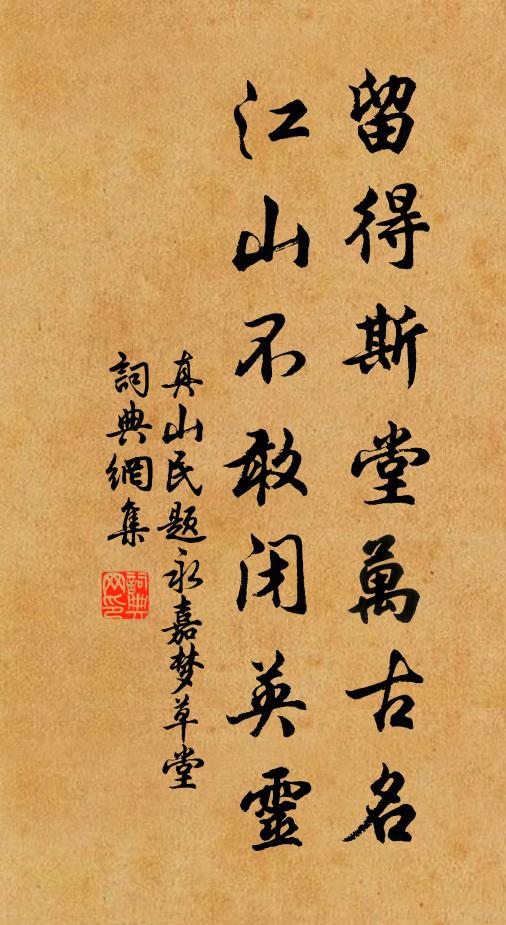 留得斯堂萬古名
江山不敢闭英靈
真山民题永嘉梦草堂
詞典網集
詞典
网印